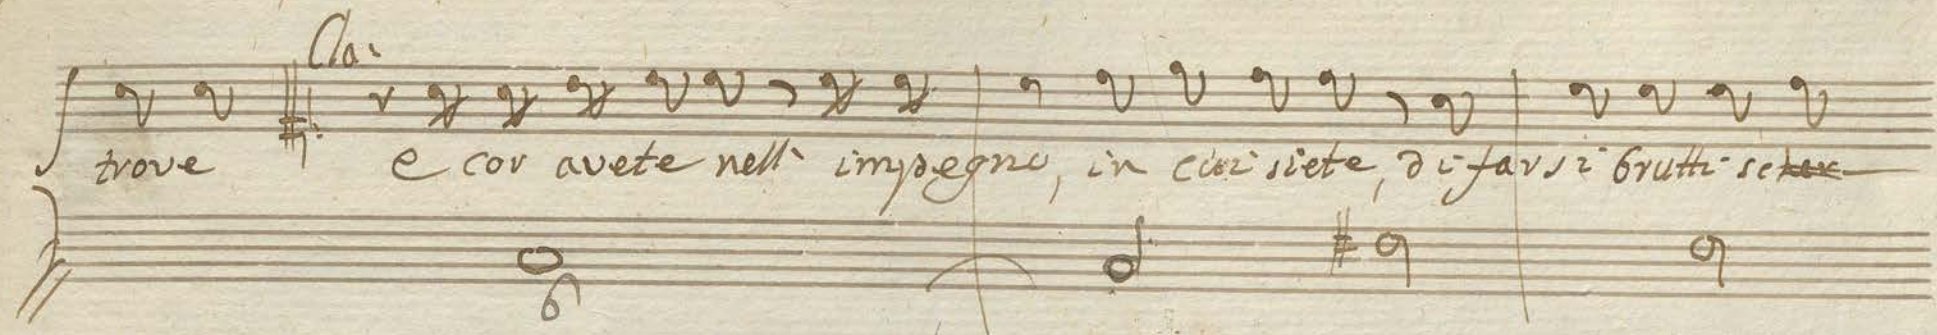 Cla:
trove e cor avete nell' impegno, in cui siete, di farsi brutti scher
6